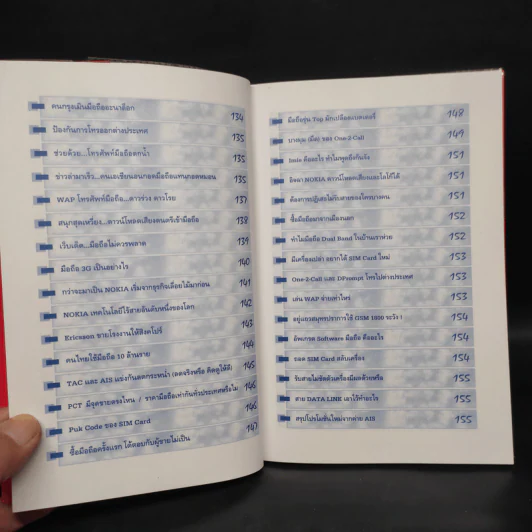 คนกรุงเมินมือถืออะนาล็อก 134
ป้องกันการโทรออกต่างประเทศ 135
ช่วยด้วย...โทรศัพท์มือถือตกน้ำ 135
ข่าวล่ามาเร็ว...คนเอเชียนอนกอดมือถือแทนกอดหมอน 135
WAP โทรศัพท์มือถือ...ดาวร่วง ดาวโรย 137
สนุกสุดเหวี่ยง...ดาวน์โหลดเสียงดนตรีเข้ามือถือ 138
เว็บเด็ด...มือถือไม่ควรพลาด 139
มือถือ 3G เป็นอย่างไร 140
กว่าจะมาเป็น NOKIA เริ่มจากธุรกิจเดื่อยไม้มาก่อน 141
NOKIA เทคโนโลยีไร้สายอันดับหนึ่งของโลก 142
Ericsson ขายโรงงานให้สิงคโปร์ 143
คนไทยใช้มือถือ 10 ล้านราย 144
TAC และ AIS แข่งกันลดกระหน่ำ (ลดจริงหรือ คิดดูให้ดี) 145
PCT มีจุดขายตรงไหน / ราคามือถือเท่ากันทั่วประเทศหรือไม่ 145
Puk Code ของ SIM Card 146
ซื้อมือถือครั้งแรก ได้ตอบกับผู้ขายไม่เป็น 147
มือถือรุ่น Top มักเปลืองแบตเตอรี่ 148
บางมุม (มืด) ของ One-2-Call 149
Imie คืออะไร ทำไมพูดถึงกันจัง 151
อิจฉา NOKIA ดาวน์โหลดเสียงและโลโก้ได้ 151
ต้องการปฏิเสธไม่รับสายของใครบางคน 151
ซื้อมือถือมาจากเมืองนอก 152
ทำไมมือถือ Dual Band ในบ้านเราห่วย 152
มีเครื่องเปล่า อยากได้ SIM Card ใหม่ 153
One-2-Call และ DPrompt โทรไปต่างประเทศ 153
เล่น WAP จ่ายเท่าไหร่ 153
อยู่แถวสมุทรปราการใช้ GSM 1800 ระวัง ! 154
อัพเกรด Software มือถือ คืออะไร 154
ถอด SIM Card สลับเครื่อง 154
รับสายไม่ชิดตัวเครื่องมีผลด้วยหรือ 155
สาย DATA LINE เอาไว้ทำอะไร 155
สรุปโปรโมชั่นใหม่จากค่าย AIS 155